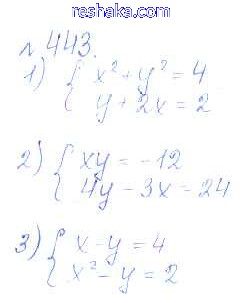 reshaka.ru
№443.
1) { x² + y² = 4
y + 2x = 2
2) { xy = -12
4y - 3x - 24
3) { x - y = 4
x² - y = 2